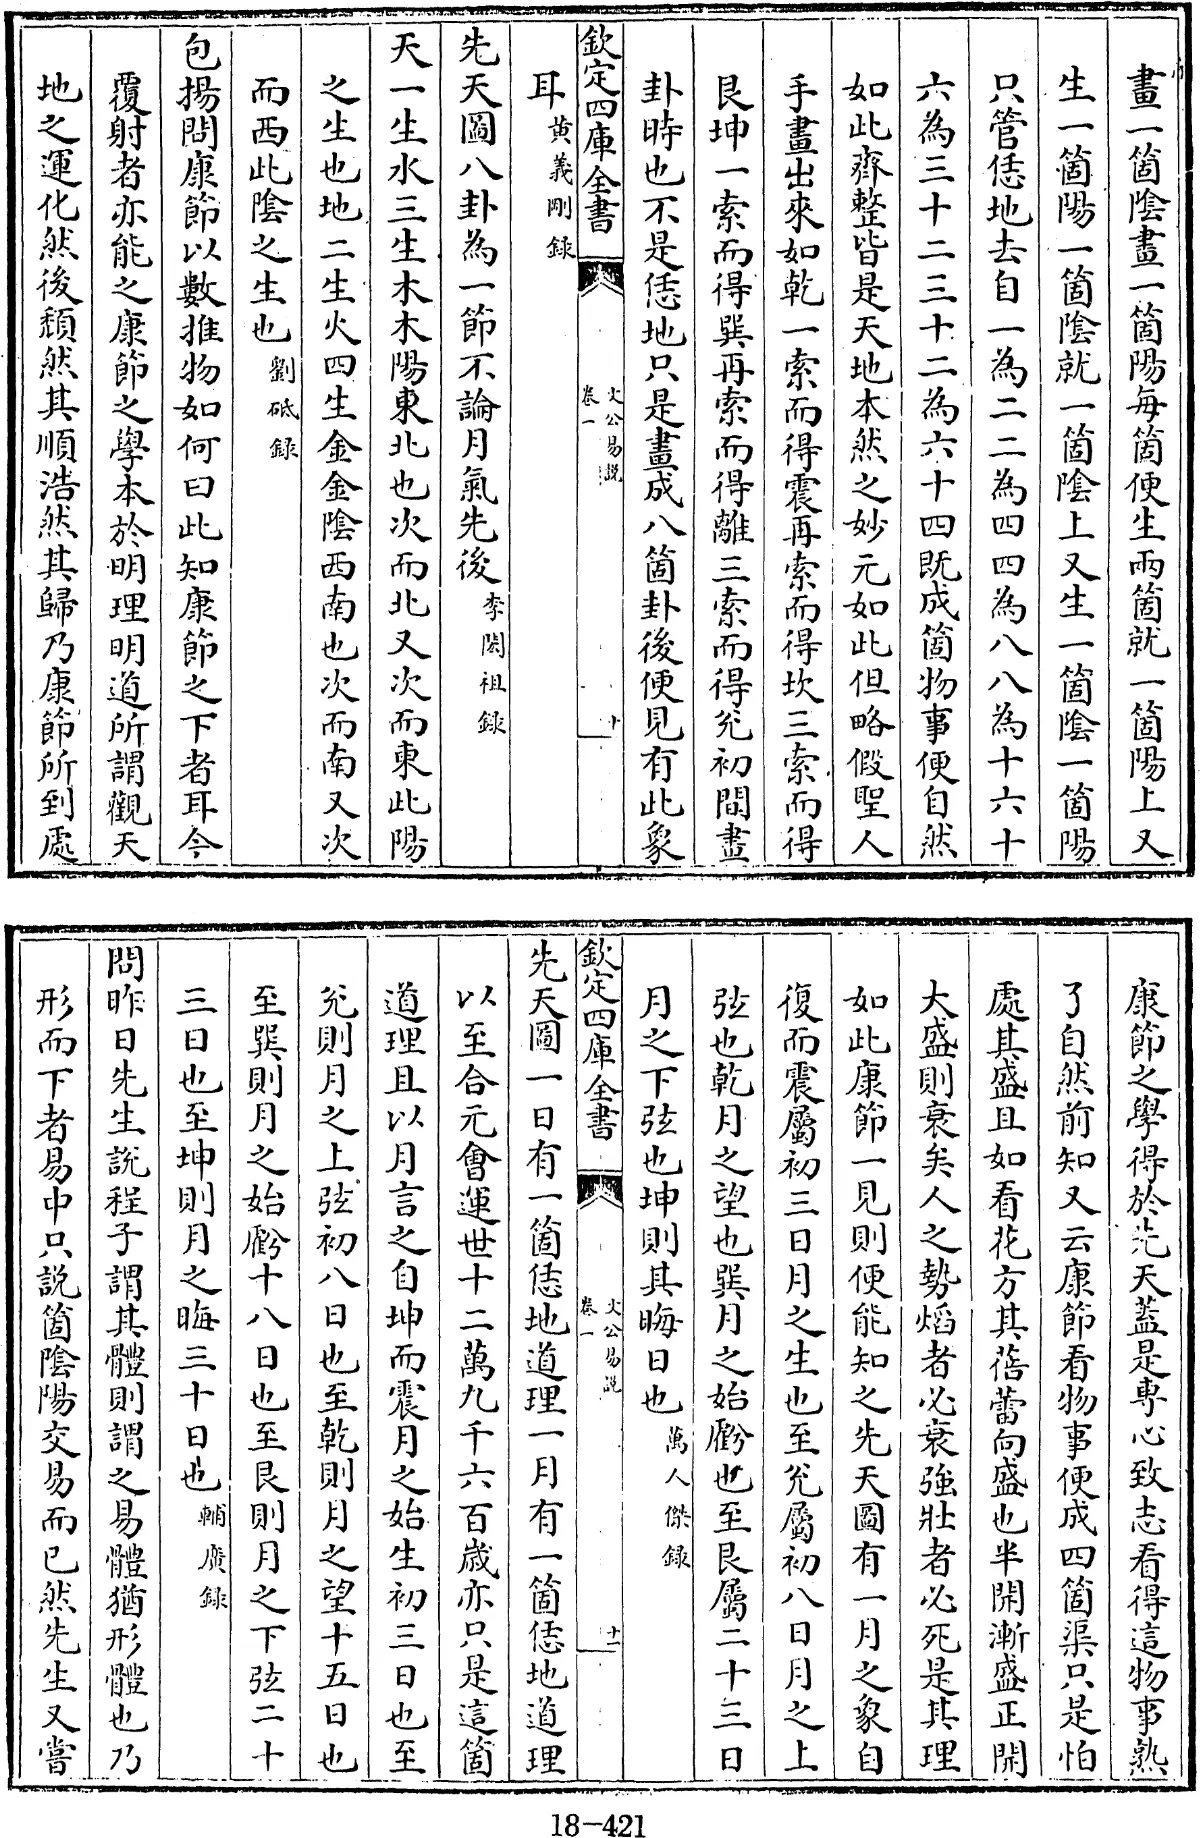 畫一箇陰畫一箇陽每箇便生兩箇就一箇陽上又
生一箇陽一箇陰就一箇陰上又生一箇陰一箇陽
只管恁地去自一為二二為四四為八八為十六十
六為三十二三十二為六十四既成箇物事便自然
如此齊整皆是天地本然之妙元如此但略假聖人
手畫出來如乾一索而得震再索而得坎三索而得
艮坤一索而得巽再索而得離三索而得兊初間畫
卦時也不是恁地只是畫成八箇卦後便見有此象
欽定四庫全書
文公易說
卷一
十
耳黄義剛錄
先天圖八卦為一節不論月氣先後李閎祖錄
天一生水三生木木陽東北也次而北又次而東此陽
之生也地二生火四生金金陰西南也次而南又次
而西此陰之生也劉砥錄
包揚問康節以數推物如何曰此知康節之下者耳今
覆射者亦能之康節之學本於明理明道所謂觀天
地之運化然後頹然其順浩然其歸乃康節所到處
康節之學得於先天蓋是專心致志看得這物事熟
了自然前知又云康節看物事便成四箇渠只是怕
處其盛且如看花方其蓓蕾向盛也半開漸盛正開
大盛則衰矣人之勢熖者必衰強壯者必死是其理
如此康節一見則便能知之先天圖有一月之象自
復而震屬初三日月之生也至兊屬初八日月之上
弦也乾月之望也巽月之始虧也至艮屬二十三日
月之下弦也坤則其晦日也萬人傑錄
欽定四庫全書
文公易說
卷一
十一
先天圖一日有一箇恁地道理一月有一箇恁地道理
以至合元會運世十二萬九千六百歲亦只是這箇
道理且以月言之自坤而震月之始生初三日也至
兊則月之上弦初八日也至乾則月之望十五日也
至巽則月之始虧十八日也至艮則月之下弦二十
三日也至坤則月之晦三十日也輔廣錄
問昨日先生說程子謂其體則謂之易體猶形體也乃
形而下者易中只說箇陰陽交易而已然先生又嘗
18-421